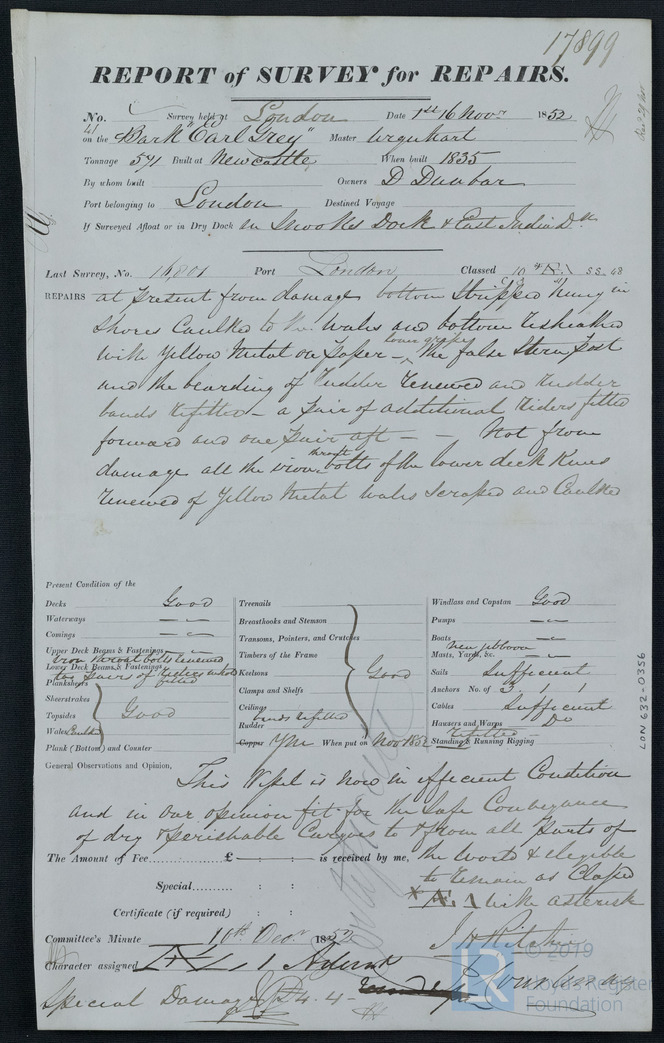 17899
REPORT of SURVEY for REPAIRS.
No. Survey held at London Date 1st 16 Novr 1852
on the Bark "Earl Grey" Master Urquhart
Tonnage 571 Built at Newcastle When built 1835
By whom built Owners D Dunbar
Port belonging to London Destined Voyage
If Surveyed Afloat or in Dry Dock in Snookes Dock & East India Dk
Last Survey, No. 16,801 Port London Classed 10 Æ 1 SS. 48
REPAIRS at present from damage bottom stripped hung in
shores Caulked to the Wales and bottom resheathed
with Yellow Metal on paper – the false Stern post
and the bearding of Rudder renewed and Rudder
bands refitted – a pair of additional riders fitted
forward and one pair aft – – Not from
damage all the iron throat bolts of the lower deck Knees
renewed of Yellow Metal wales scraped and Caulked
Present Condition of the
Decks Good
Waterways
Comings
Upper Deck Beams & Fastenings
iron throat bolts renewed
Lower Deck Beams & Fastenings
two pairs of riders fitted
Planksheers
Sheerstrakes
Topsides Good
Wales Caulked
Plank (Bottom) and Counter
Treenails
Breasthooks and Stemson
Transoms, Pointers, and Crutches
Timbers of the Frame
Keelsons Good
Clamps and Shelfs
Ceilings
bands refitted
Rudder
Copper YM When put on Novr 1852
Windlass and Capstan Good
Pumps
Boats
new jibboom
Masts, Yards, &c.
Sails Sufficient
Anchors No. of 3 1 1
Cables Sufficient
Hawsers and Warps Do
refitted
Standing & Running Rigging
General Observations and Opinion,
This Vessel is now in efficient Condition
and in our opinion fit for the safe Conveyance
of dry & perishable Cargoes to & from all parts of
The Amount of Fee £ : : is received by me, the World & eligible
to remain as Classed
Special : :
* Æ 1 with asterisk
Certificate (if required) : :
Committee's Minute 10th Decr 1852
J H Ritchie
Character assigned Æ 1
Special Damage £ 4. 4 –
© 2019
Lloyds Register
Foundation
LR
LON 632-0356